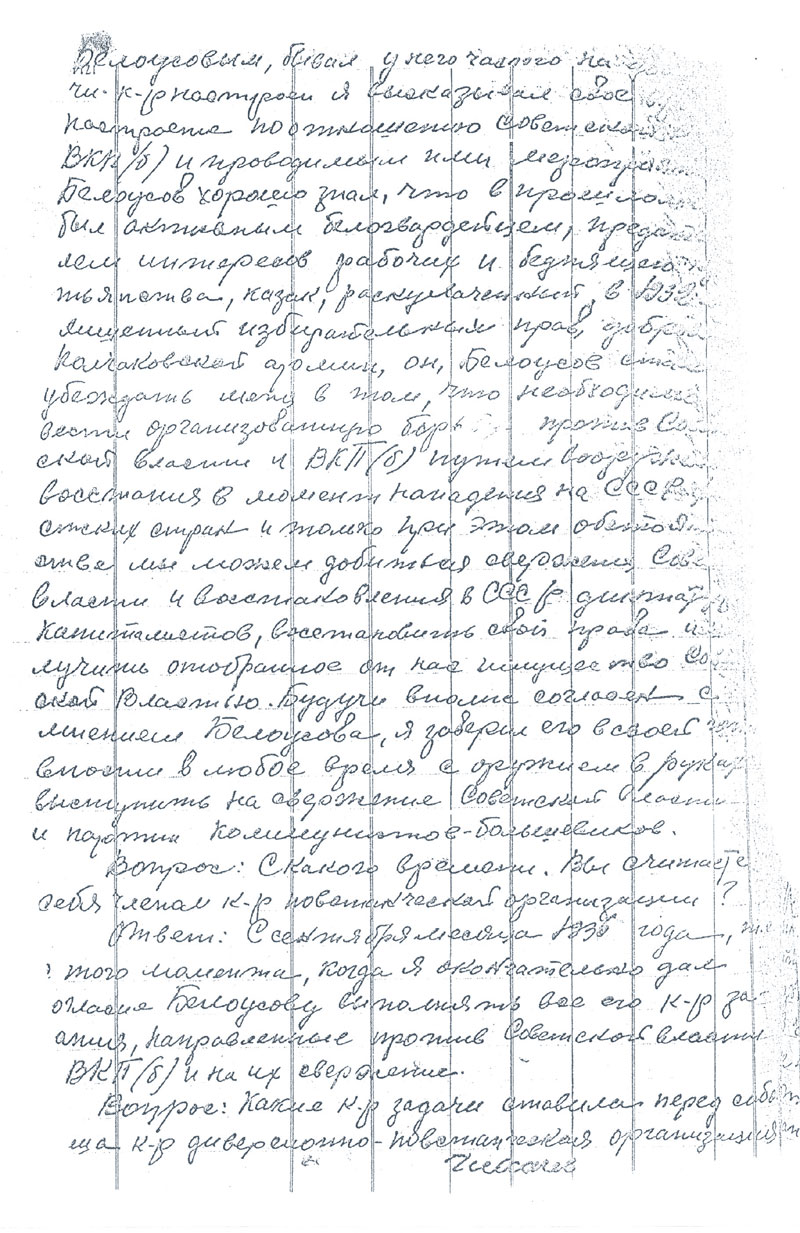 Белоусовым, бывал у него часто на
чи. к-р настроен я высказывал свое
настроение по отношению Советской
ВКП(б) и проводимым ими мероприя
Белоусов хорошо знал, что в прошлом
был активным белогвардейцем, предат
лем интересов рабочих и бедняцкого
тьянства, казак, раскулаченный, в 1932
лишенный избирательных прав, добро
Колчаковской армии, он, Белоусов стал
убеждать меня в том, что необходимо
вести организованную борьбу против Сов
ской власти и ВКП(б) путем вооруж
восстания в момент нападения на СССР
стских стран и только при этом обстоя
стве мы можем добиться свержения Сове
власти и восстановления в СССР диктат
капиталистов, восстановить свои права и
лучить отобранное от нас имущество Со
ской Властью. Будучи вполне согласен с
мнением Белоусова, я заверил его в своей
вности в любое время с оружием в руках
выступить на свержение Советской власти
и партии коммунистов-большевиков.
Вопрос: С какого времени. Вы считаете
себя членом к-р повстанческой организации?
Ответ: С сентября месяца 1936 года,
того момента, когда я окончательно дал
огласие Белоусову выполнять все его к-р за-
ания, направленные против Советской власти
ВКП(б) и на их свержение.
Вопрос: Какие к-р задачи ставила перед собой
ща к-р диверсионно-повстанческая организация